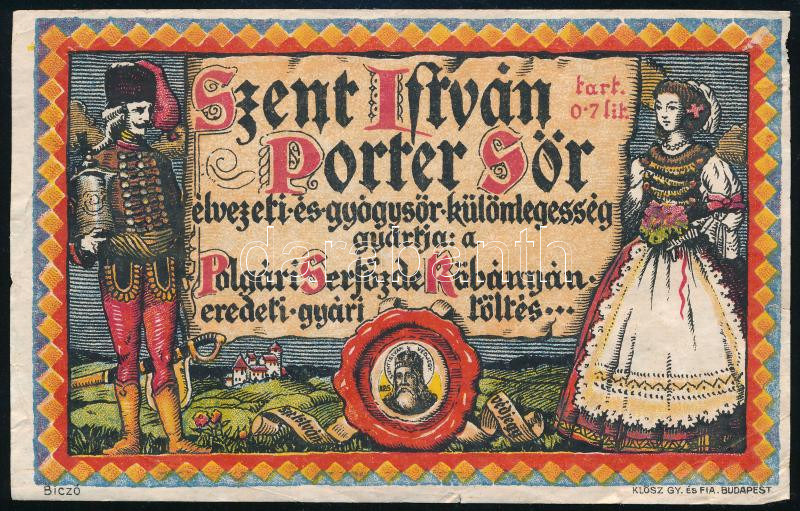 Szent István
tart.
0·7 lit.
Porter Sör
élvezeti·és·gyógysör·különlegesség
gyártja: a
Polgári Serfőzde Kőbányán·
eredeti·gyári töltés...
védjegy
Biczó
KLÖSZ GY. ÉS FIA. BUDAPEST
darabanth